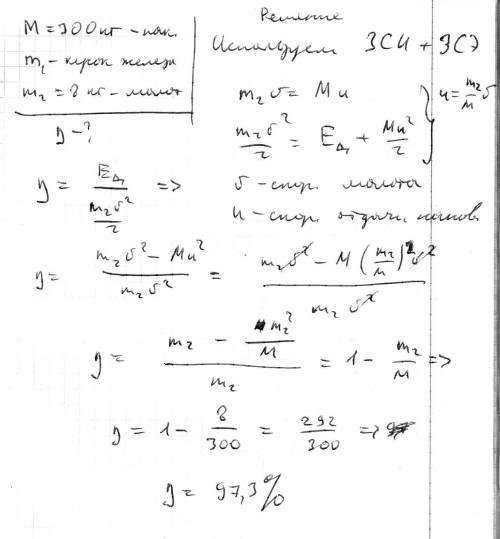 M = 300 кг - нак.
m₁ - кусок железа
m₂ = 8 кг - молот
η - ?
Решение
Используем ЗСИ + ЗСЭ
m₂ υ = M u
m₂ υ² / 2 = E_Д₁ + M u² / 2
u = m₂/M υ
η = E_Д₁ / (m₂ υ² / 2) =>
υ - скор. молота
u - скор. отдачи наков.
η = (m₂ υ² - M u²) / (m₂ υ²) = (m₂ υ² - M (m₂/M)² υ²) / (m₂ υ²)
η = (m₂ - m₂²/M) / m₂ = 1 - m₂/M =>
η = 1 - 8/300 = 292/300 =>
η = 97,3%